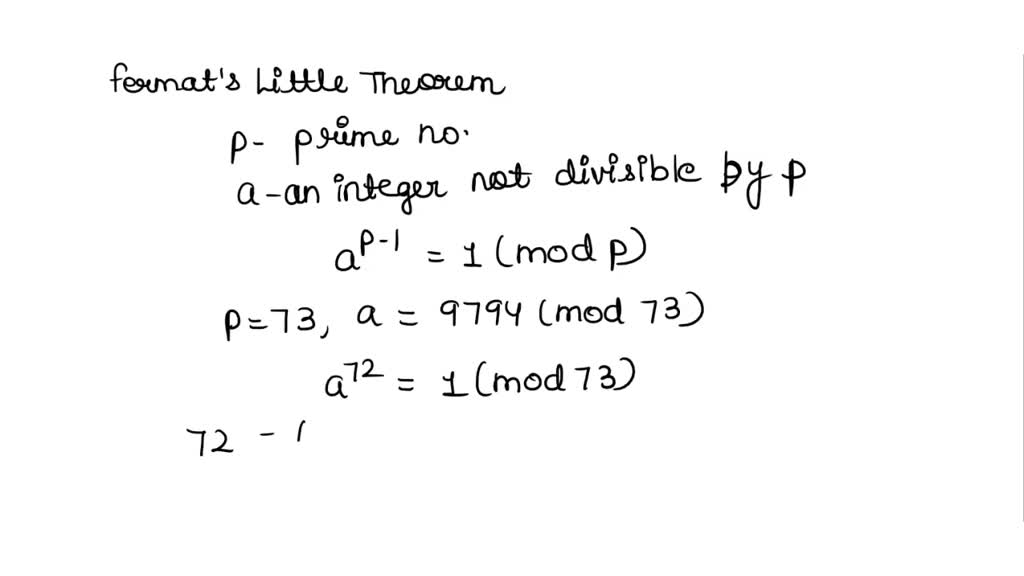 fermat's Little Theorem
p- prime no.
a-an integer not divisible by p
a^{p-1} = 1 (mod p)
p=73, a = 9794 (mod 73)
a^{72} = 1 (mod 73)
72 - 1